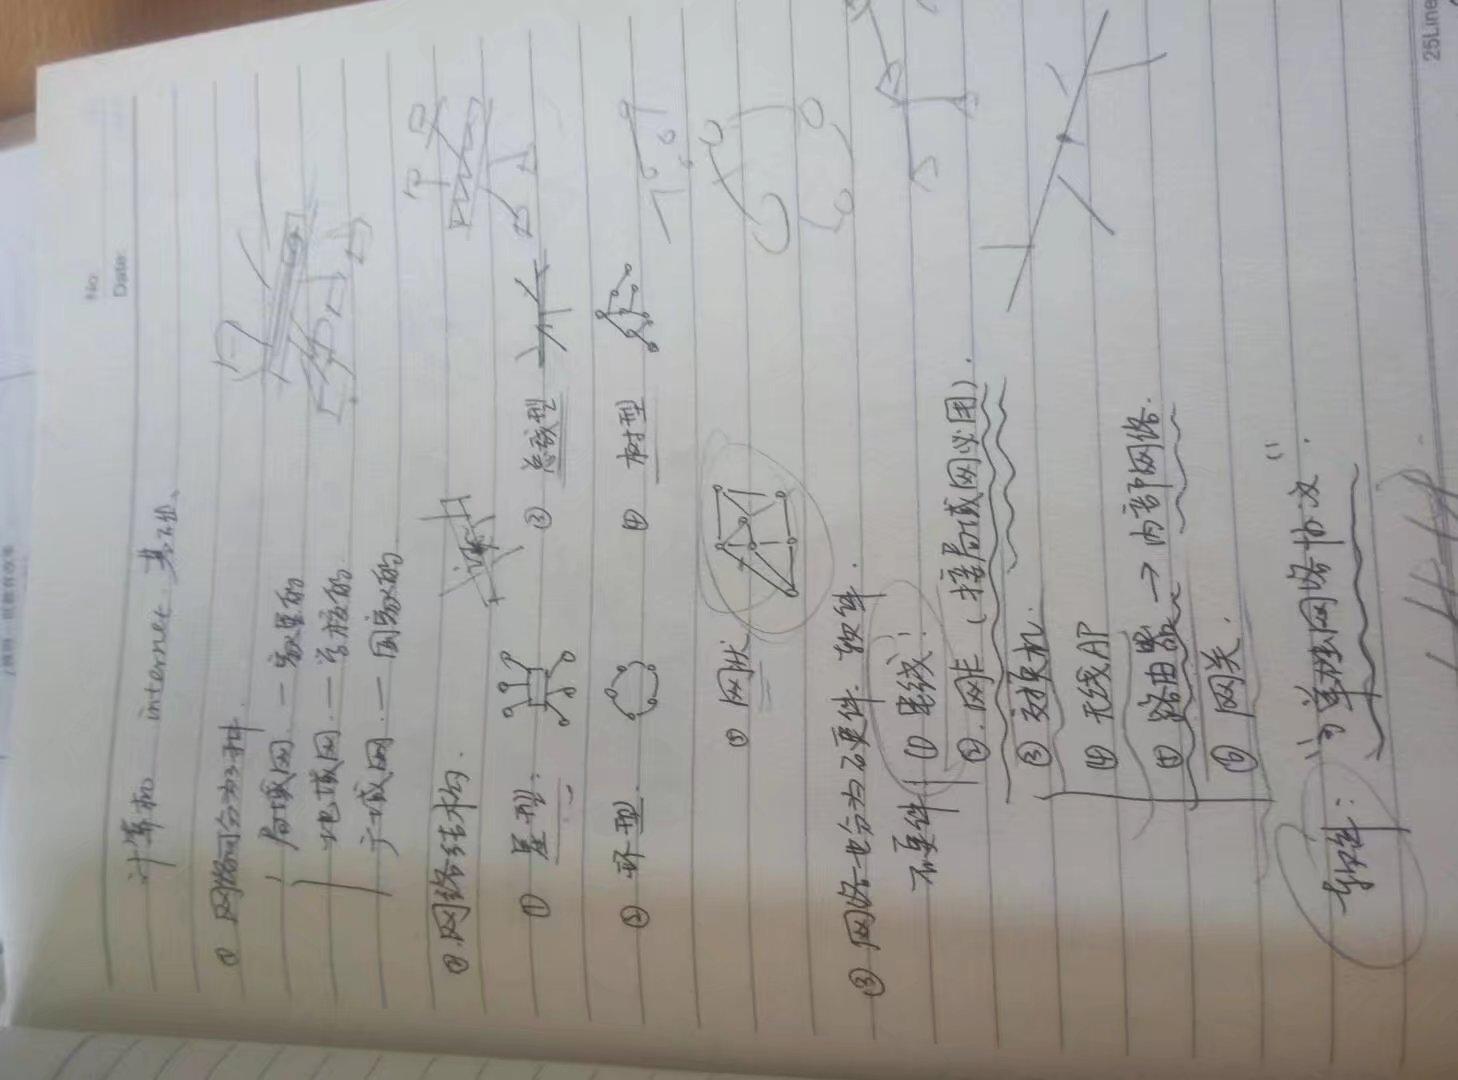 No.
Date.
计算机 internet 基础
① 网络可分为3种.
局域网.一家里的
地域网.一学校的
广域网.一国家的
② 网络结构.
① 星型. ② 总线型
③ 环型. ④ 树型
⑤ 网状
③ 网络也分为硬件. 软件.
硬件 ①
② 网卡 (接局域网必用).
③ 交换机.
④ 无线AP
④ 路由器 → 内部网络.
⑤ 网关.
软件: "
网络协议 "
25Line